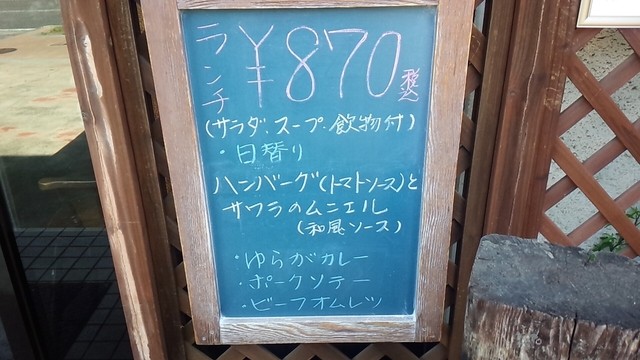 ランチ ¥870 税込
(サラダ、スープ・飲物付)
・日替り
ハンバーグ(トマトソース)と
サワラのムニエル
(和風ソース)
・ゆらがカレー
・ポークソテー
・ビーフオムレツ